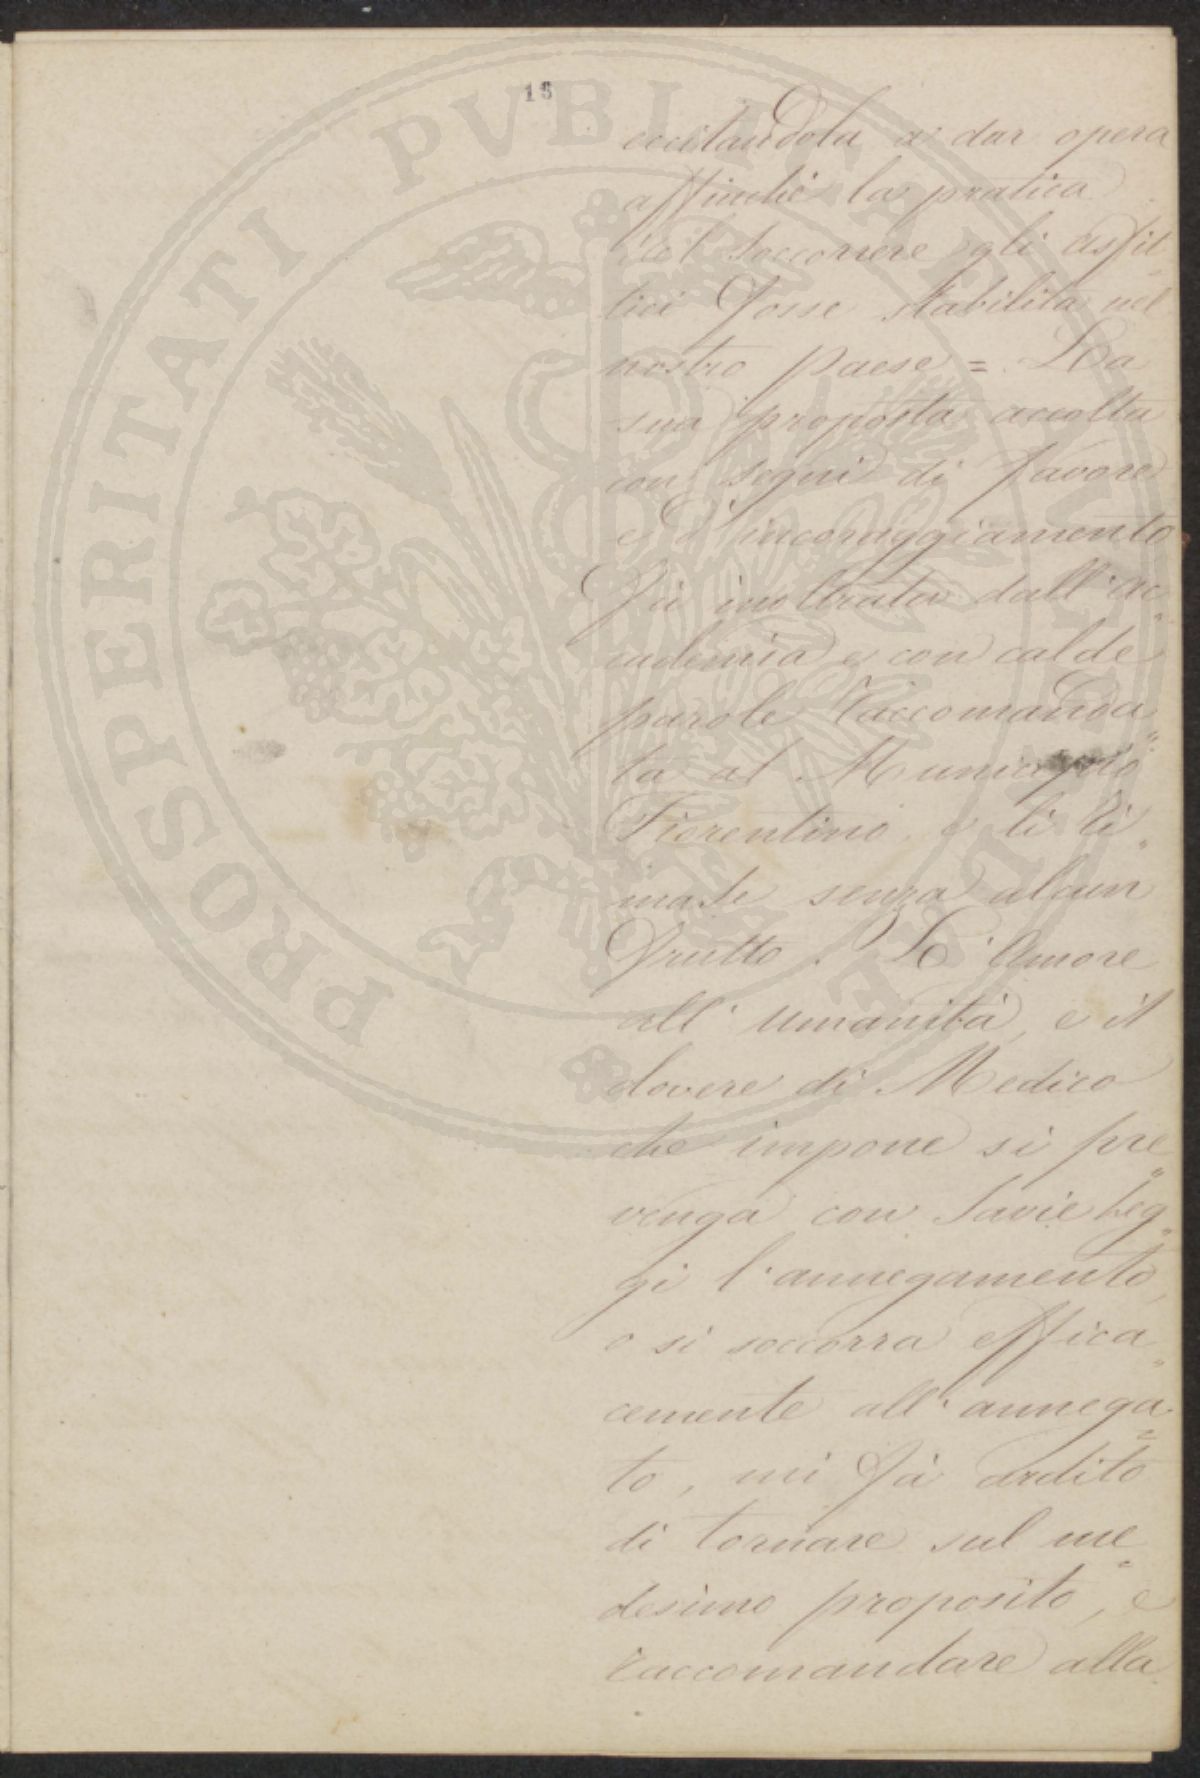 18
eccitandola a dar opera
affinchè la pratica
del soccorrere gli asfit-
tici fosse stabilita nel
nostro paese = La
sua proposta accolta
con segni di favore
e d'incoraggiamento
fù inoltrata dall'ac-
cademia e con calde
parole raccomanda-
ta al Municipio
Fiorentino, e lì ri-
mase senza alcun
frutto. L'Amore
all'umanità, e il
dovere di Medico
che impone si pre-
venga con savie leg-
gi l'annegamento,
o si soccorra effica-
cemente all'annega-
to, mi fà ardito
di tornare sul me-
desimo proposito, e
raccomandare alla
PROSPERITATI PVBLICAE